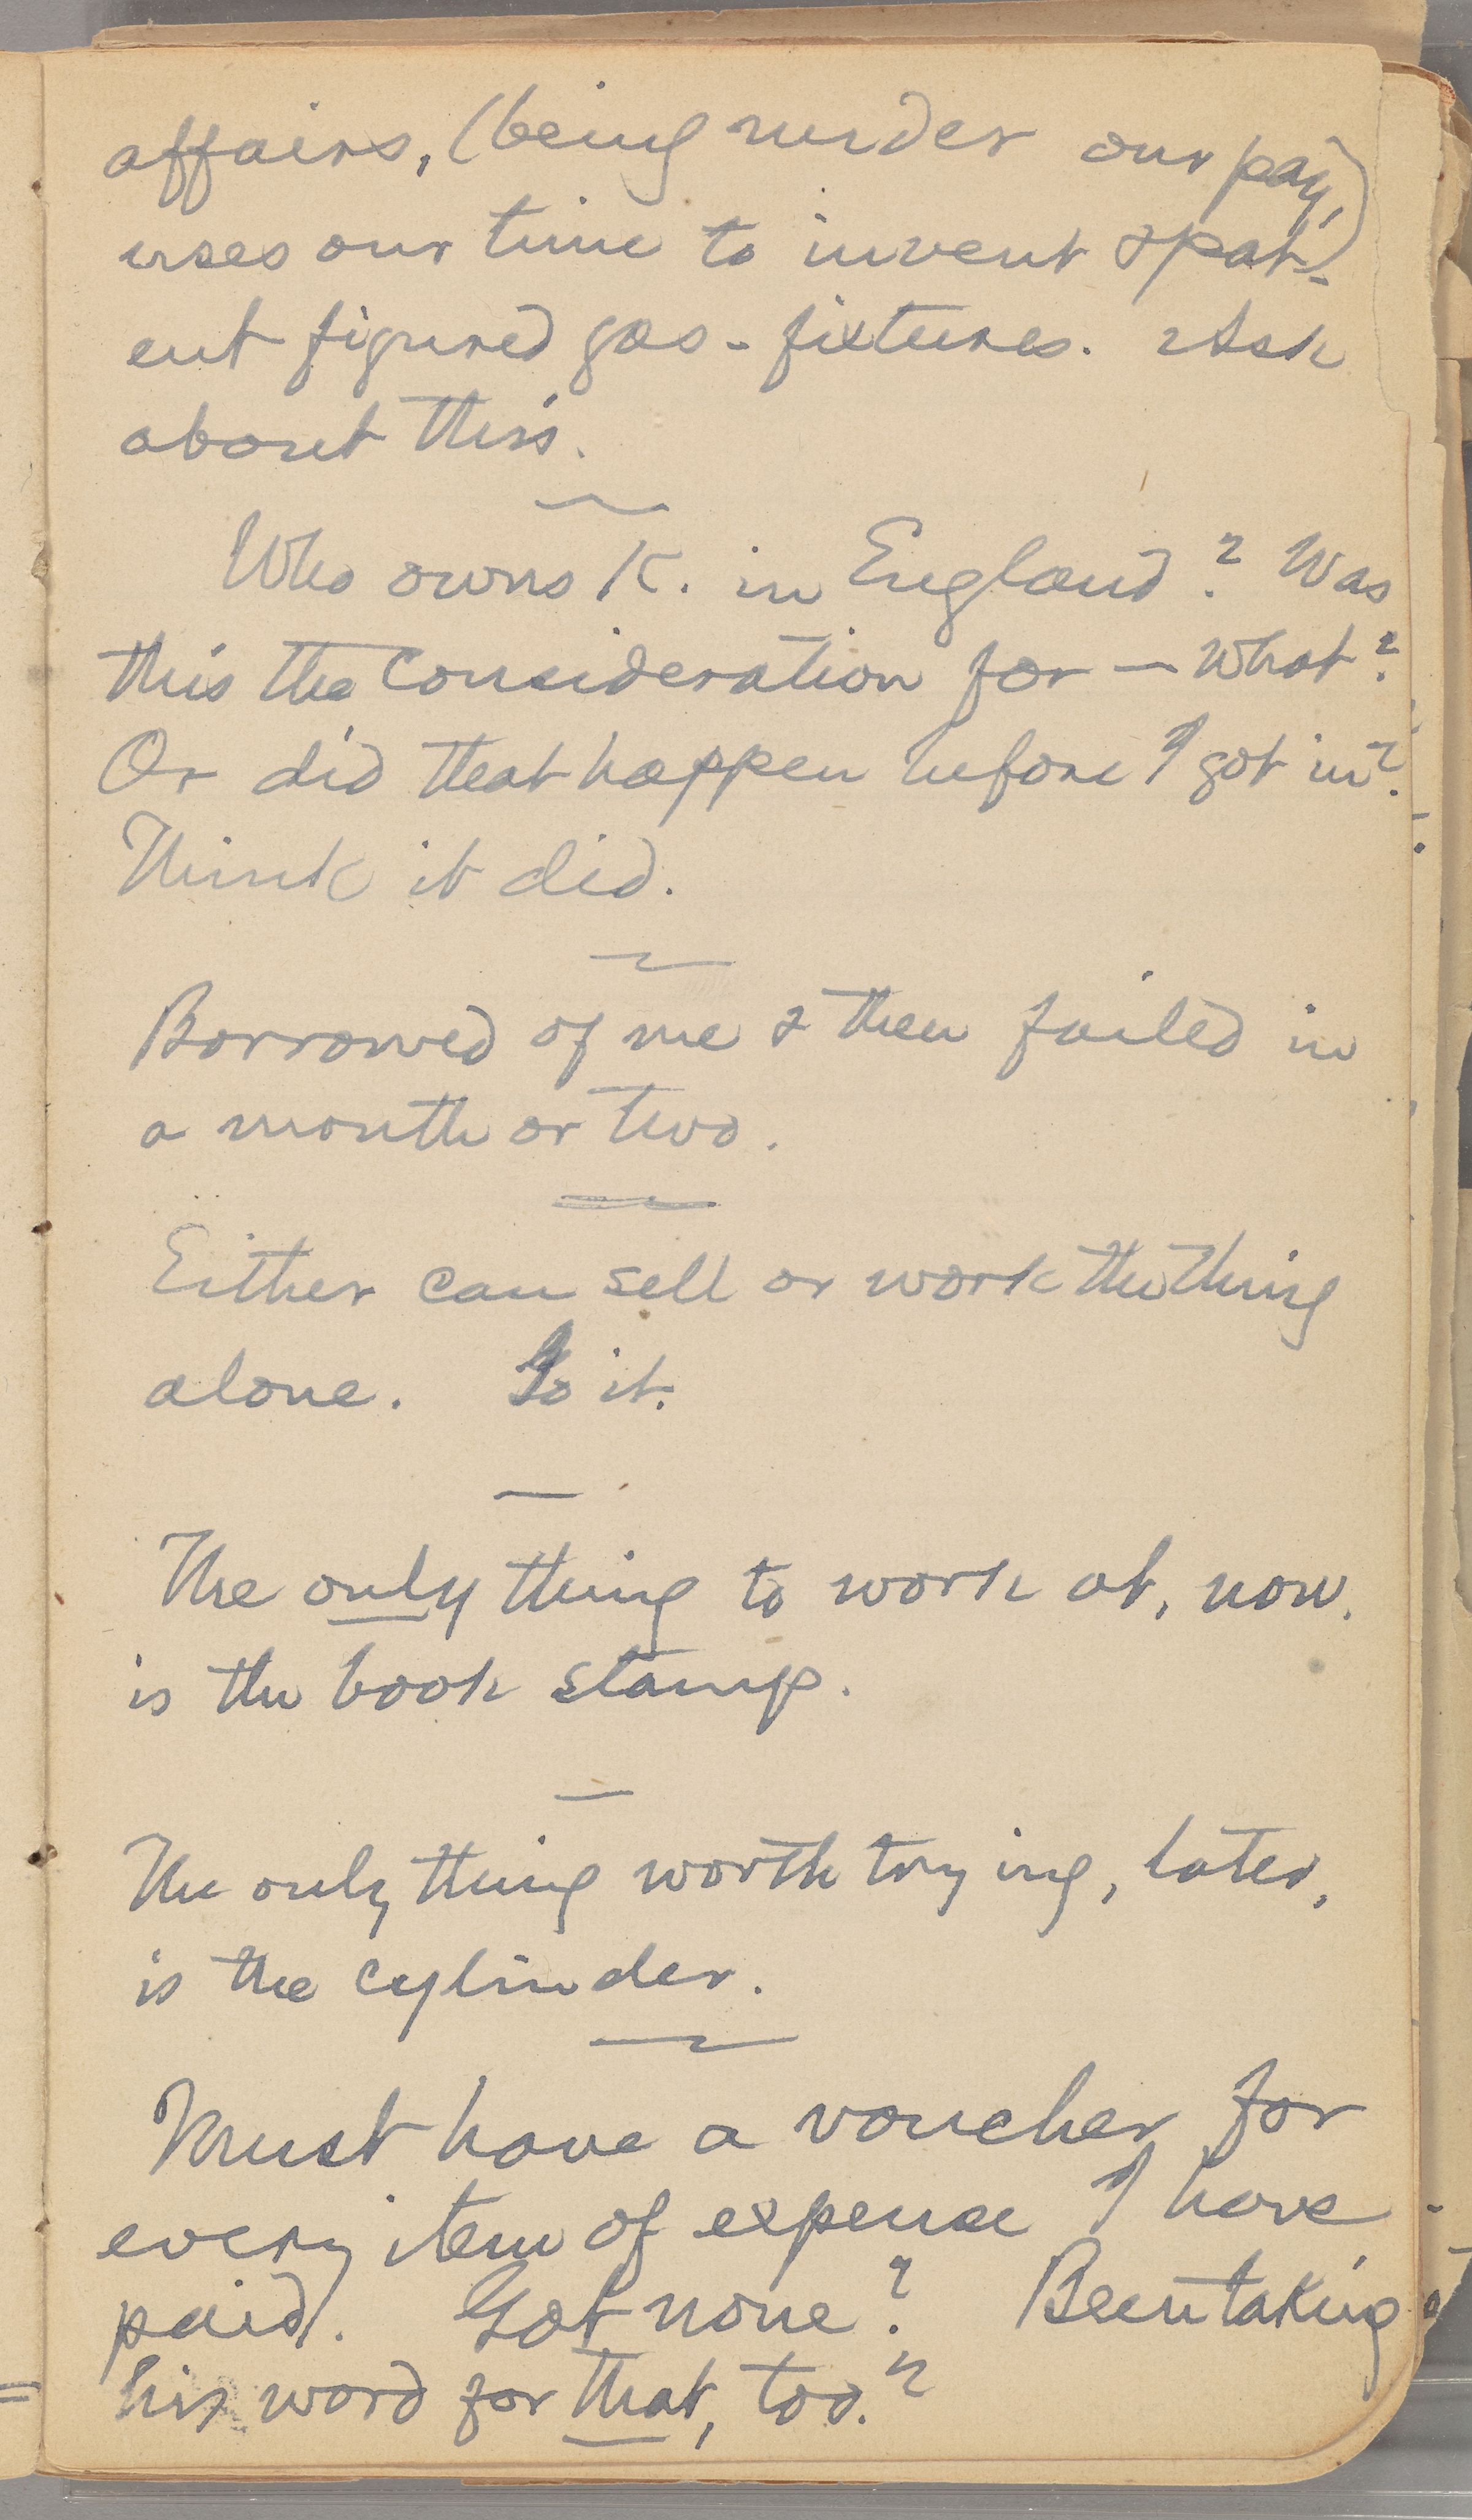 affairs, (being under our pay,)
uses our time to invent & pat-
ent figured gas-fixtures. Ask
about this.
Who owns K. in England? Was
this the consideration for — what?
Or did that happen before I got in?
Think it did.
Borrowed of me & then failed in
a month or two.
Either can sell or work the thing
alone. Go it.
The only thing to work at, now,
is the book stamp.
The only thing worth trying, later,
is the cylinder.
Must have a voucher for
every item of expense I have
paid. Got none? Been taking
his word for that, too?